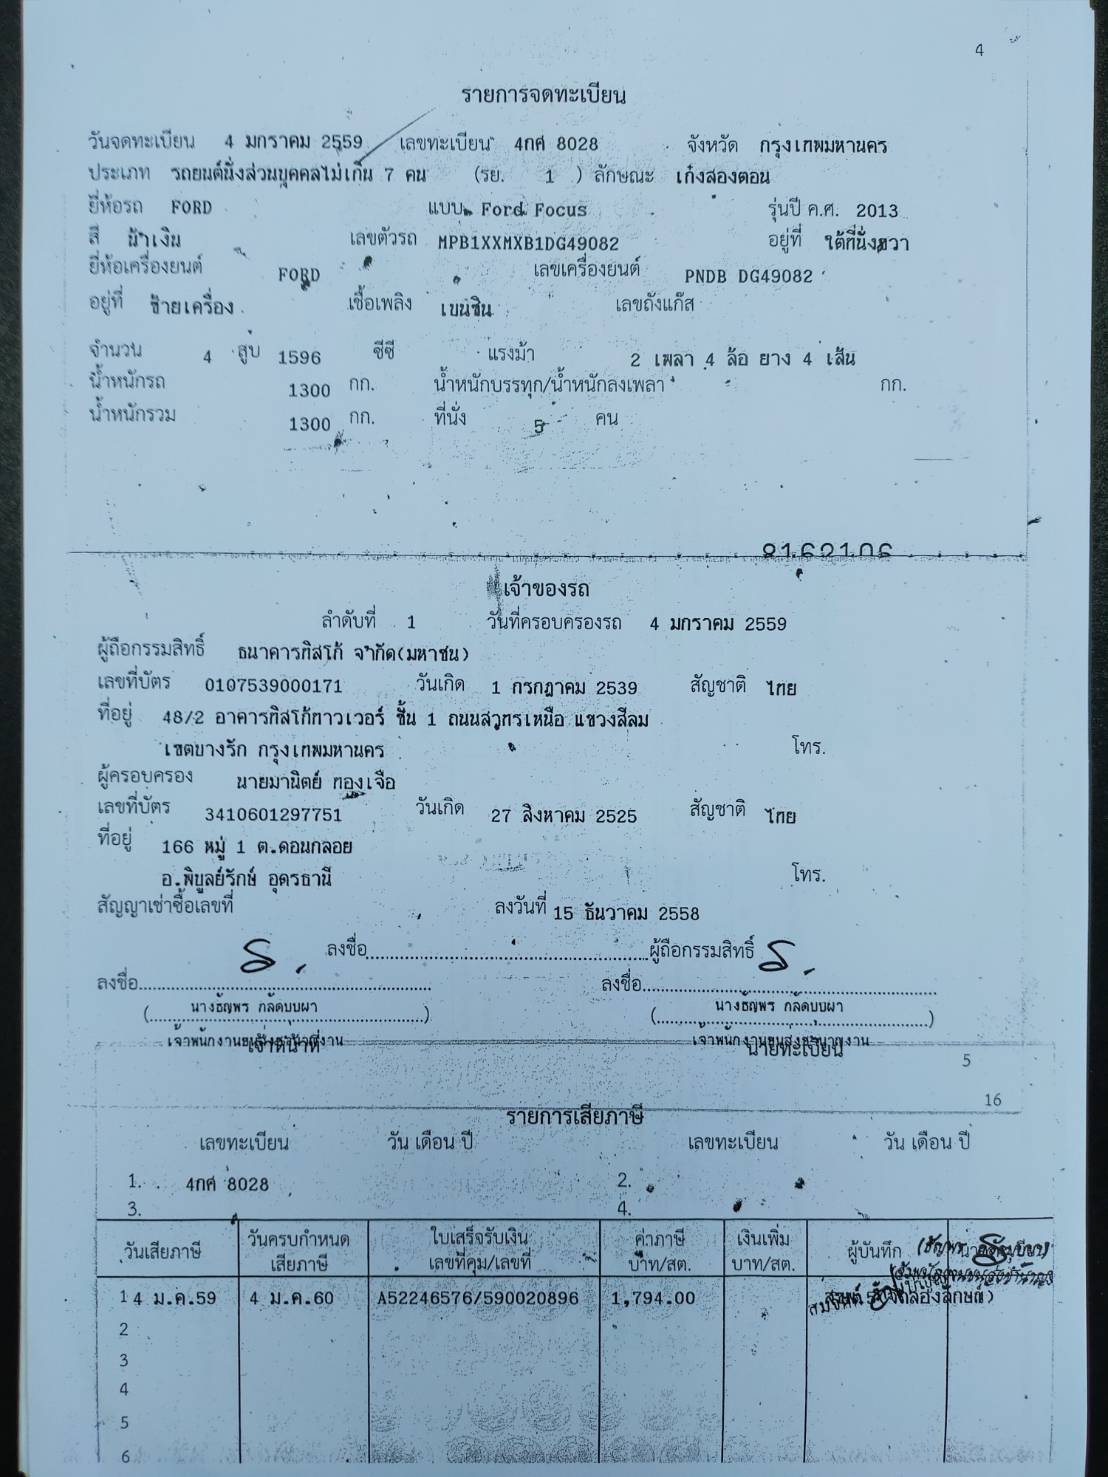 4
รายการจดทะเบียน
วันจดทะเบียน 4 มกราคม 2559 เลขทะเบียน 4กศ 8028 จังหวัด กรุงเทพมหานคร
ประเภท รถยนต์นั่งส่วนบุคคลไม่เกิน 7 คน (รย. 1 ) ลักษณะ เก๋งสองตอน
ยี่ห้อรถ FORD แบบ Ford Focus รุ่นปี ค.ศ. 2013
สี น้ำเงิน เลขตัวรถ MPB1XXMXB1DG49082 อยู่ที่ ใต้ที่นั่งขวา
ยี่ห้อเครื่องยนต์ FORD เลขเครื่องยนต์ PNDB DG49082
อยู่ที่ ซ้ายเครื่อง เชื้อเพลิง เบนซิน เลขถังแก๊ส
จำนวน 4 สูบ 1596 ซีซี แรงม้า 2 เพลา 4 ล้อ ยาง 4 เส้น
น้ำหนักรถ 1300 กก. น้ำหนักบรรทุก/น้ำหนักลงเพลา กก.
น้ำหนักรวม 1300 กก. ที่นั่ง 5 คน
เจ้าของรถ
ลำดับที่ 1 วันที่ครอบครองรถ 4 มกราคม 2559
ผู้ถือกรรมสิทธิ์ ธนาคารทิสโก้ จำกัด(มหาชน)
เลขที่บัตร 0107539000171 วันเกิด 1 กรกฎาคม 2539 สัญชาติ ไทย
ที่อยู่ 48/2 อาคารทิสโก้ทาวเวอร์ ชั้น 1 ถนนสาทรเหนือ แขวงสีลม
เขตบางรัก กรุงเทพมหานคร โทร.
ผู้ครอบครอง นายมานิตย์ ทองเจือ
เลขที่บัตร 3410601297751 วันเกิด 27 สิงหาคม 2525 สัญชาติ ไทย
ที่อยู่ 166 หมู่ 1 ต.ดอนกลอย
อ.พิบูลย์รักษ์ อุดรธานี โทร.
สัญญาเช่าซื้อเลขที่ ลงวันที่ 15 ธันวาคม 2558
ลงชื่อ ผู้ถือกรรมสิทธิ์
ลงชื่อ ลงชื่อ
(นางธัญพร กลัดบุบผา) (นางธัญพร กลัดบุบผา)
เจ้าหน้าที่ นายทะเบียน
5
16
รายการเสียภาษี
เลขทะเบียน วัน เดือน ปี เลขทะเบียน วัน เดือน ปี
1. 4กศ 8028 2.
3. 4.
วันเสียภาษี วันครบกำหนด ใบเสร็จรับเงิน ค่าภาษี เงินเพิ่ม ผู้บันทึก
เสียภาษี เลขที่คุม/เลขที่ บาท/สต. บาท/สต.
1 4 ม.ค.59 4 ม.ค.60 A52246576/590020896 1,794.00
2
3
4
5
6